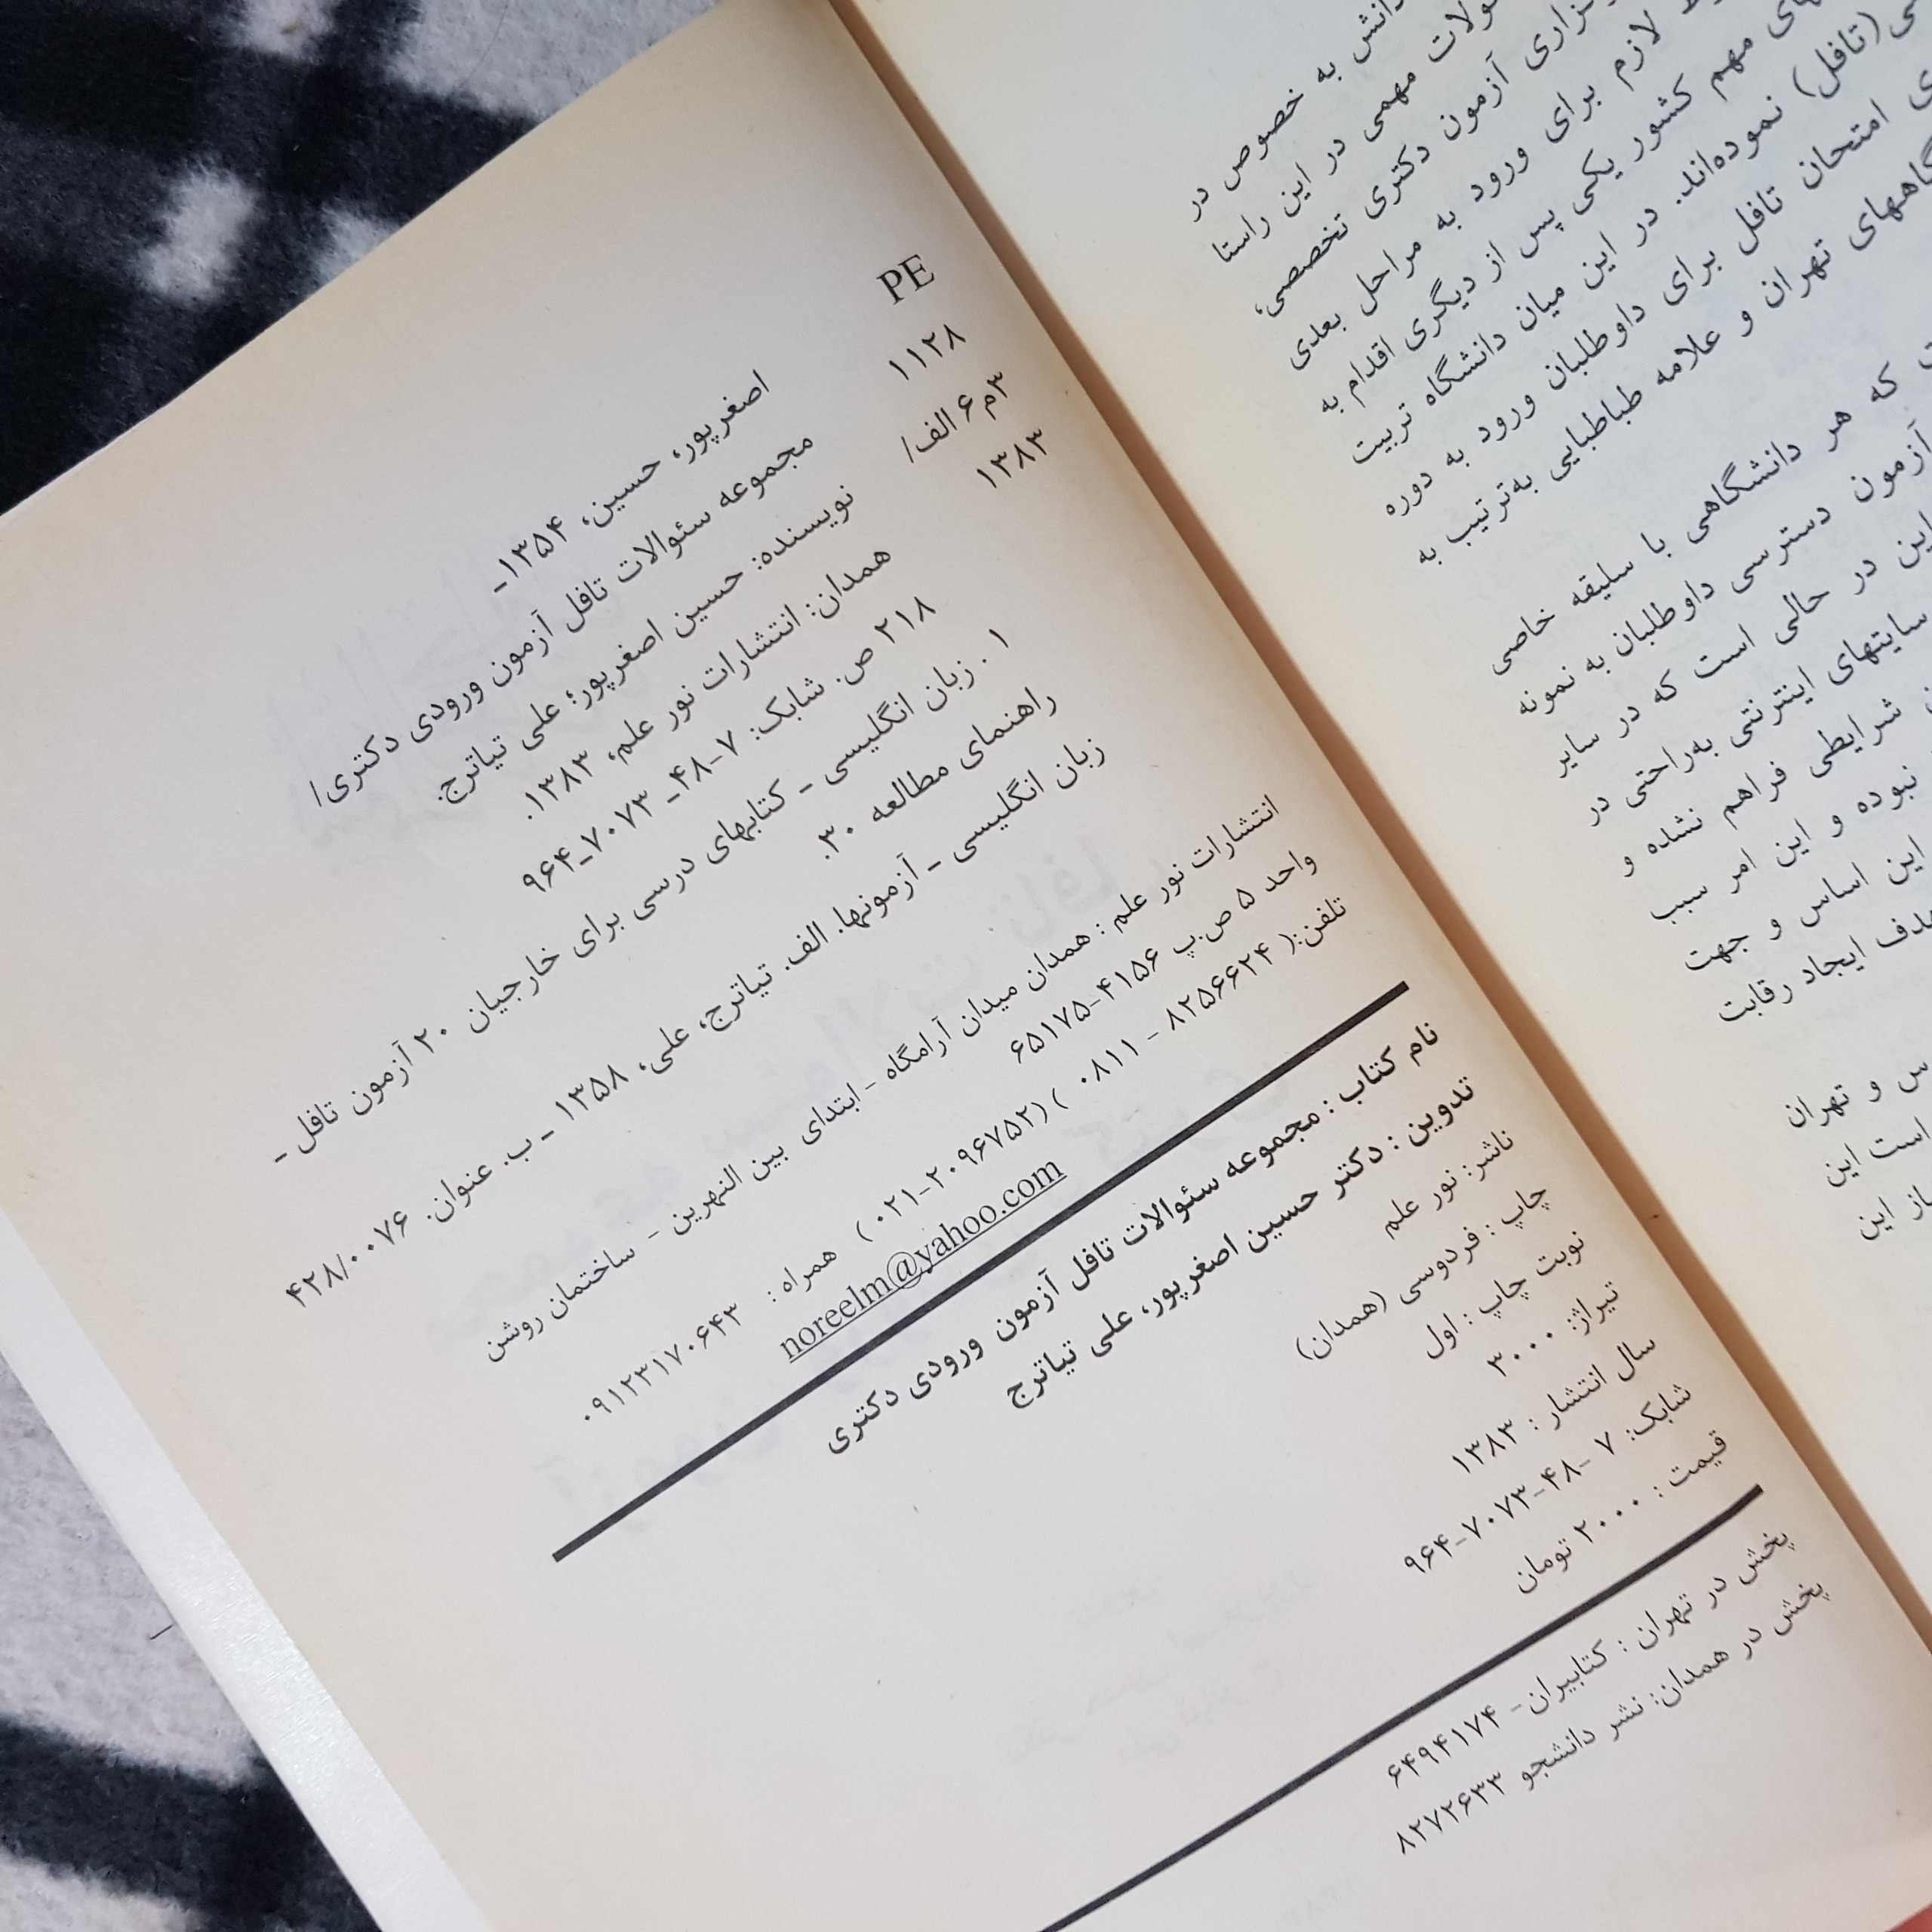 PE
۱۱۲۸
۳م۶ الف/
۱۳۸۳
اصغرپور، حسین، ۱۳۵۴ـ
مجموعه سئوالات تافل آزمون ورودی دکتری/
نویسنده: حسین اصغرپور؛ علی تیاترج.
همدان: انتشارات نور علم، ۱۳۸۳.
۲۱۸ ص. شابک: ۷-۴۸ـ ۷۰۷۳ـ۹۶۴
۱ . زبان انگلیسی - کتابهای درسی برای خارجیان ۲۰ آزمون تافل -
راهنمای مطالعه ۳۰.
زبان انگلیسی - آزمونها. الف. تیاترج، علی، ۱۳۵۸ ـ ب. عنوان. ۴۲۸/۰۰۷۶
انتشارات نور علم : همدان میدان آرامگاه - ابتدای بین النهرین - ساختمان روشن
واحد ۵ ص.پ ۴۱۵۶-۶۵۱۷۵
تلفن:( ۸۲۵۶۶۲۴ - ۰۸۱۱ ) (۲۰۹۶۷۵۲-۰۲۱ ) همراه : ۰۹۱۲۳۱۷۰۶۴۳
noreelm@yahoo.com
نام کتاب : مجموعه سئوالات تافل آزمون ورودی دکتری
تدوین : دکتر حسین اصغرپور، علی تیاترج
ناشر: نور علم
چاپ : فردوسی (همدان)
نوبت چاپ : اول
تیراژ: ۳۰۰۰
سال انتشار : ۱۳۸۳
شابک: ۷ -۴۸-۷۰۷۳-۹۶۴
قیمت : ۲۰۰۰ تومان
پخش در تهران : کتابیران- ۶۴۹۴۱۷۴
پخش در همدان: نشر دانشجو ۸۲۷۲۶۳۳
دانش به خصوص در
مهمی در این راستا
آزمون دکتری تخصصی،
لازم برای ورود به مراحل بعدی
مهم کشور یکی پس از دیگری اقدام به
(تافل) نموده‌اند. در این میان دانشگاه تربیت
امتحان تافل برای داوطلبان ورود به دوره
تهران و علامه طباطبایی به‌ترتیب به
که هر دانشگاهی با سلیقه خاصی
آزمون دسترسی داوطلبان به نمونه
این در حالی است که در سایر
سایتهای اینترنتی به‌راحتی در
شرایطی فراهم نشده و
نبوده و این امر سبب
این اساس و جهت
ایجاد رقابت
و تهران
است این
این